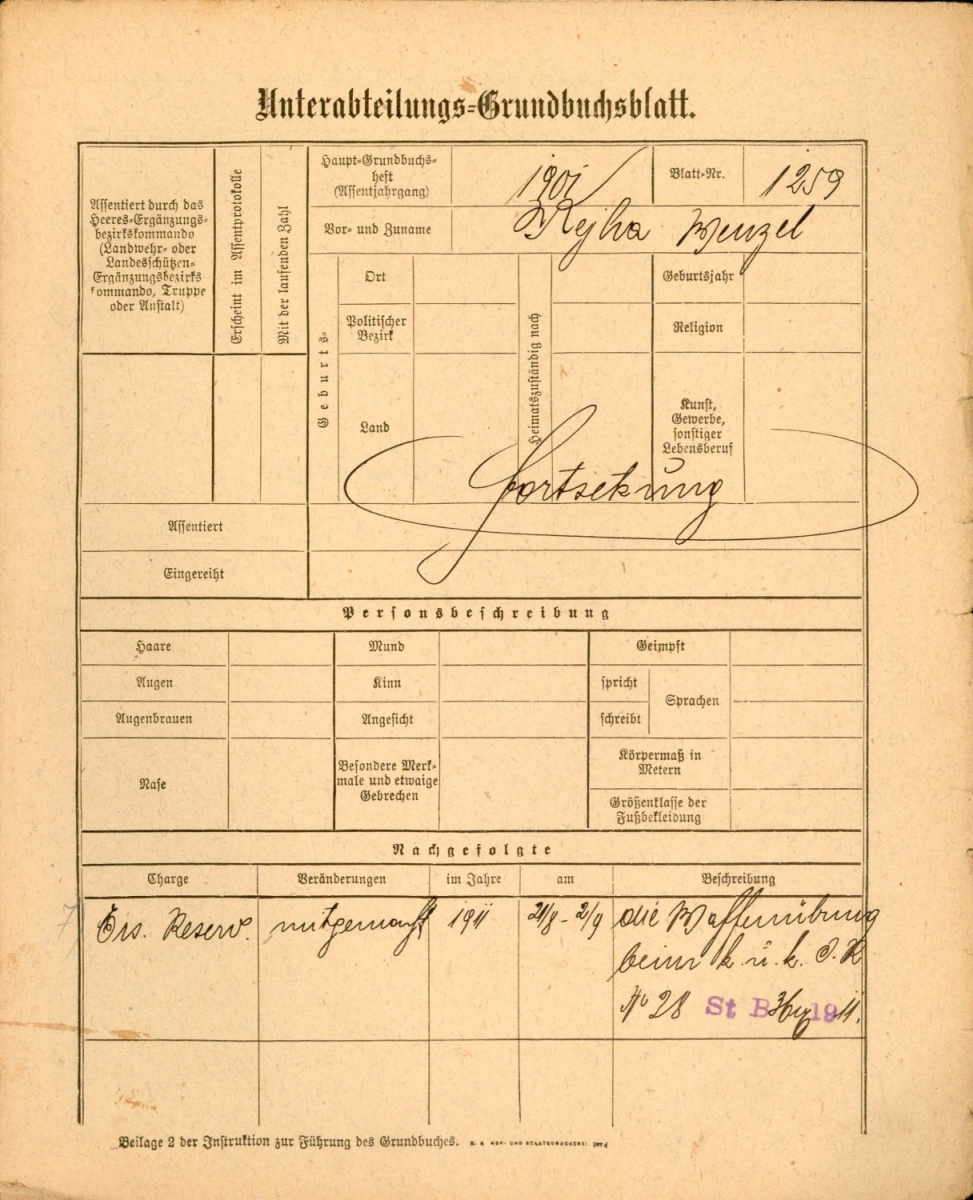 Unterabteilungs-Grundbuchsblatt.
Assentiert durch das
Heeres-Ergänzungs-
bezirkskommando
(Landwehr- oder
Landesschützen-
Ergänzungsbezirks
kommando, Truppe
oder Anstalt)
Erscheint im Assentprotokolle
Mit der laufenden Zahl
Haupt-Grundbuchs-
heft
(Assentjahrgang)
1901
Blatt-Nr.
1259
Vor- und Zuname
Rejha Wenzel
Geburts-
Ort
Politischer
Bezirk
Land
Heimatszuständig nach
Geburtsjahr
Religion
Kunst,
Gewerbe,
sonstiger
Lebensberuf
Fortsetzung
Assentiert
Eingereiht
Personsbeschreibung
Haare
Mund
Geimpft
Augen
Kinn
spricht
schreibt
Sprachen
Augenbrauen
Angesicht
Nase
Besondere Merk-
male und etwaige
Gebrechen
Körpermaß in
Metern
Größenklasse der
Fußbekleidung
Nachgefolgte
Charge
Veränderungen
im Jahre
am
Beschreibung
Ers. Reserv.
mitgemacht
1911
21/8 - 2/9
die Waffenübung
beim k. u. k. I. R
No 28 St B 1911.
Beilage 2 der Instruktion zur Führung des Grundbuches.
K. K. HOF- UND STAATSDRUCKEREI